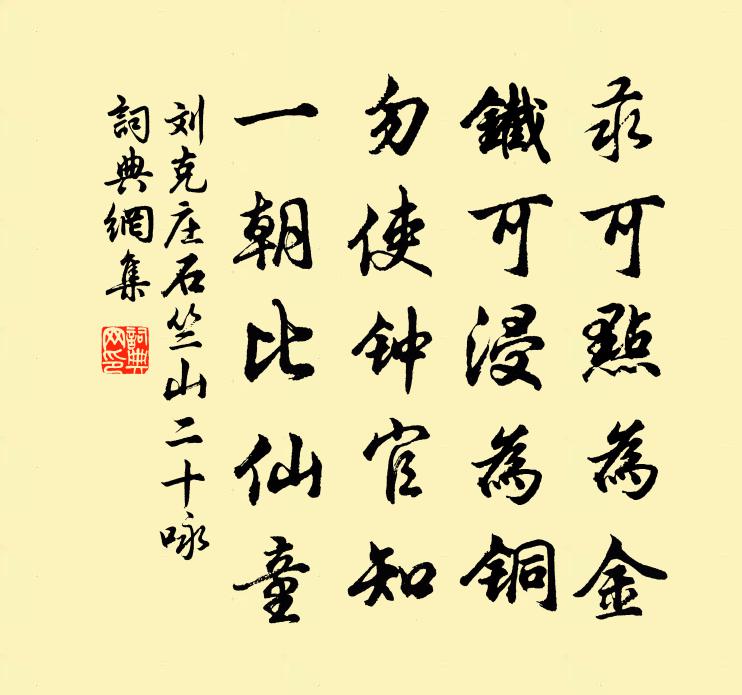 汞可點為金
鐵可浸為銅
勿使钟官知
一朝比仙童
刘克庄石竺山二十咏
詞典網集
詞典网印